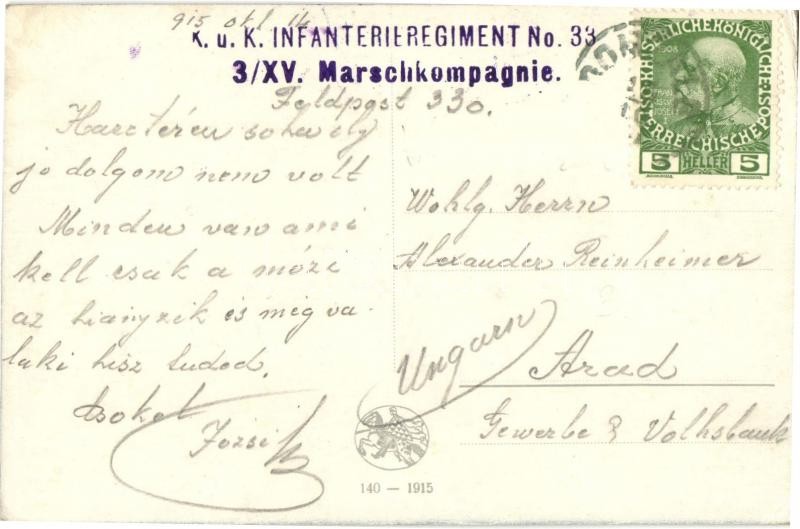 915 okt 14
K. u. K. INFANTERIEREGIMENT No. 33
3/XV. Marschkompagnie.
Feldpost 330.
Harcterén soha ily
jo dolgom nem volt
Minden van ami
kell csak a mózi
az hianyzik és meg va-
laki hisz tudod.
csokol
Józsi
1908
KAISERLICHEKÖNIGLICHE
ÖSTERREICHISCHE POST
5 HELLER 5
Wohlg. Herrn
Alexander Reinheimer
Ungarn
Arad
Gewerbe & Volksbank
140 — 1915